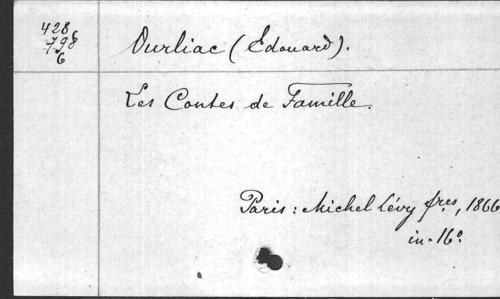 428
798
6
Ourliac (Edouard).
Les Contes de Famille.
Paris : Michel Lévy frres, 1866
in-16º.